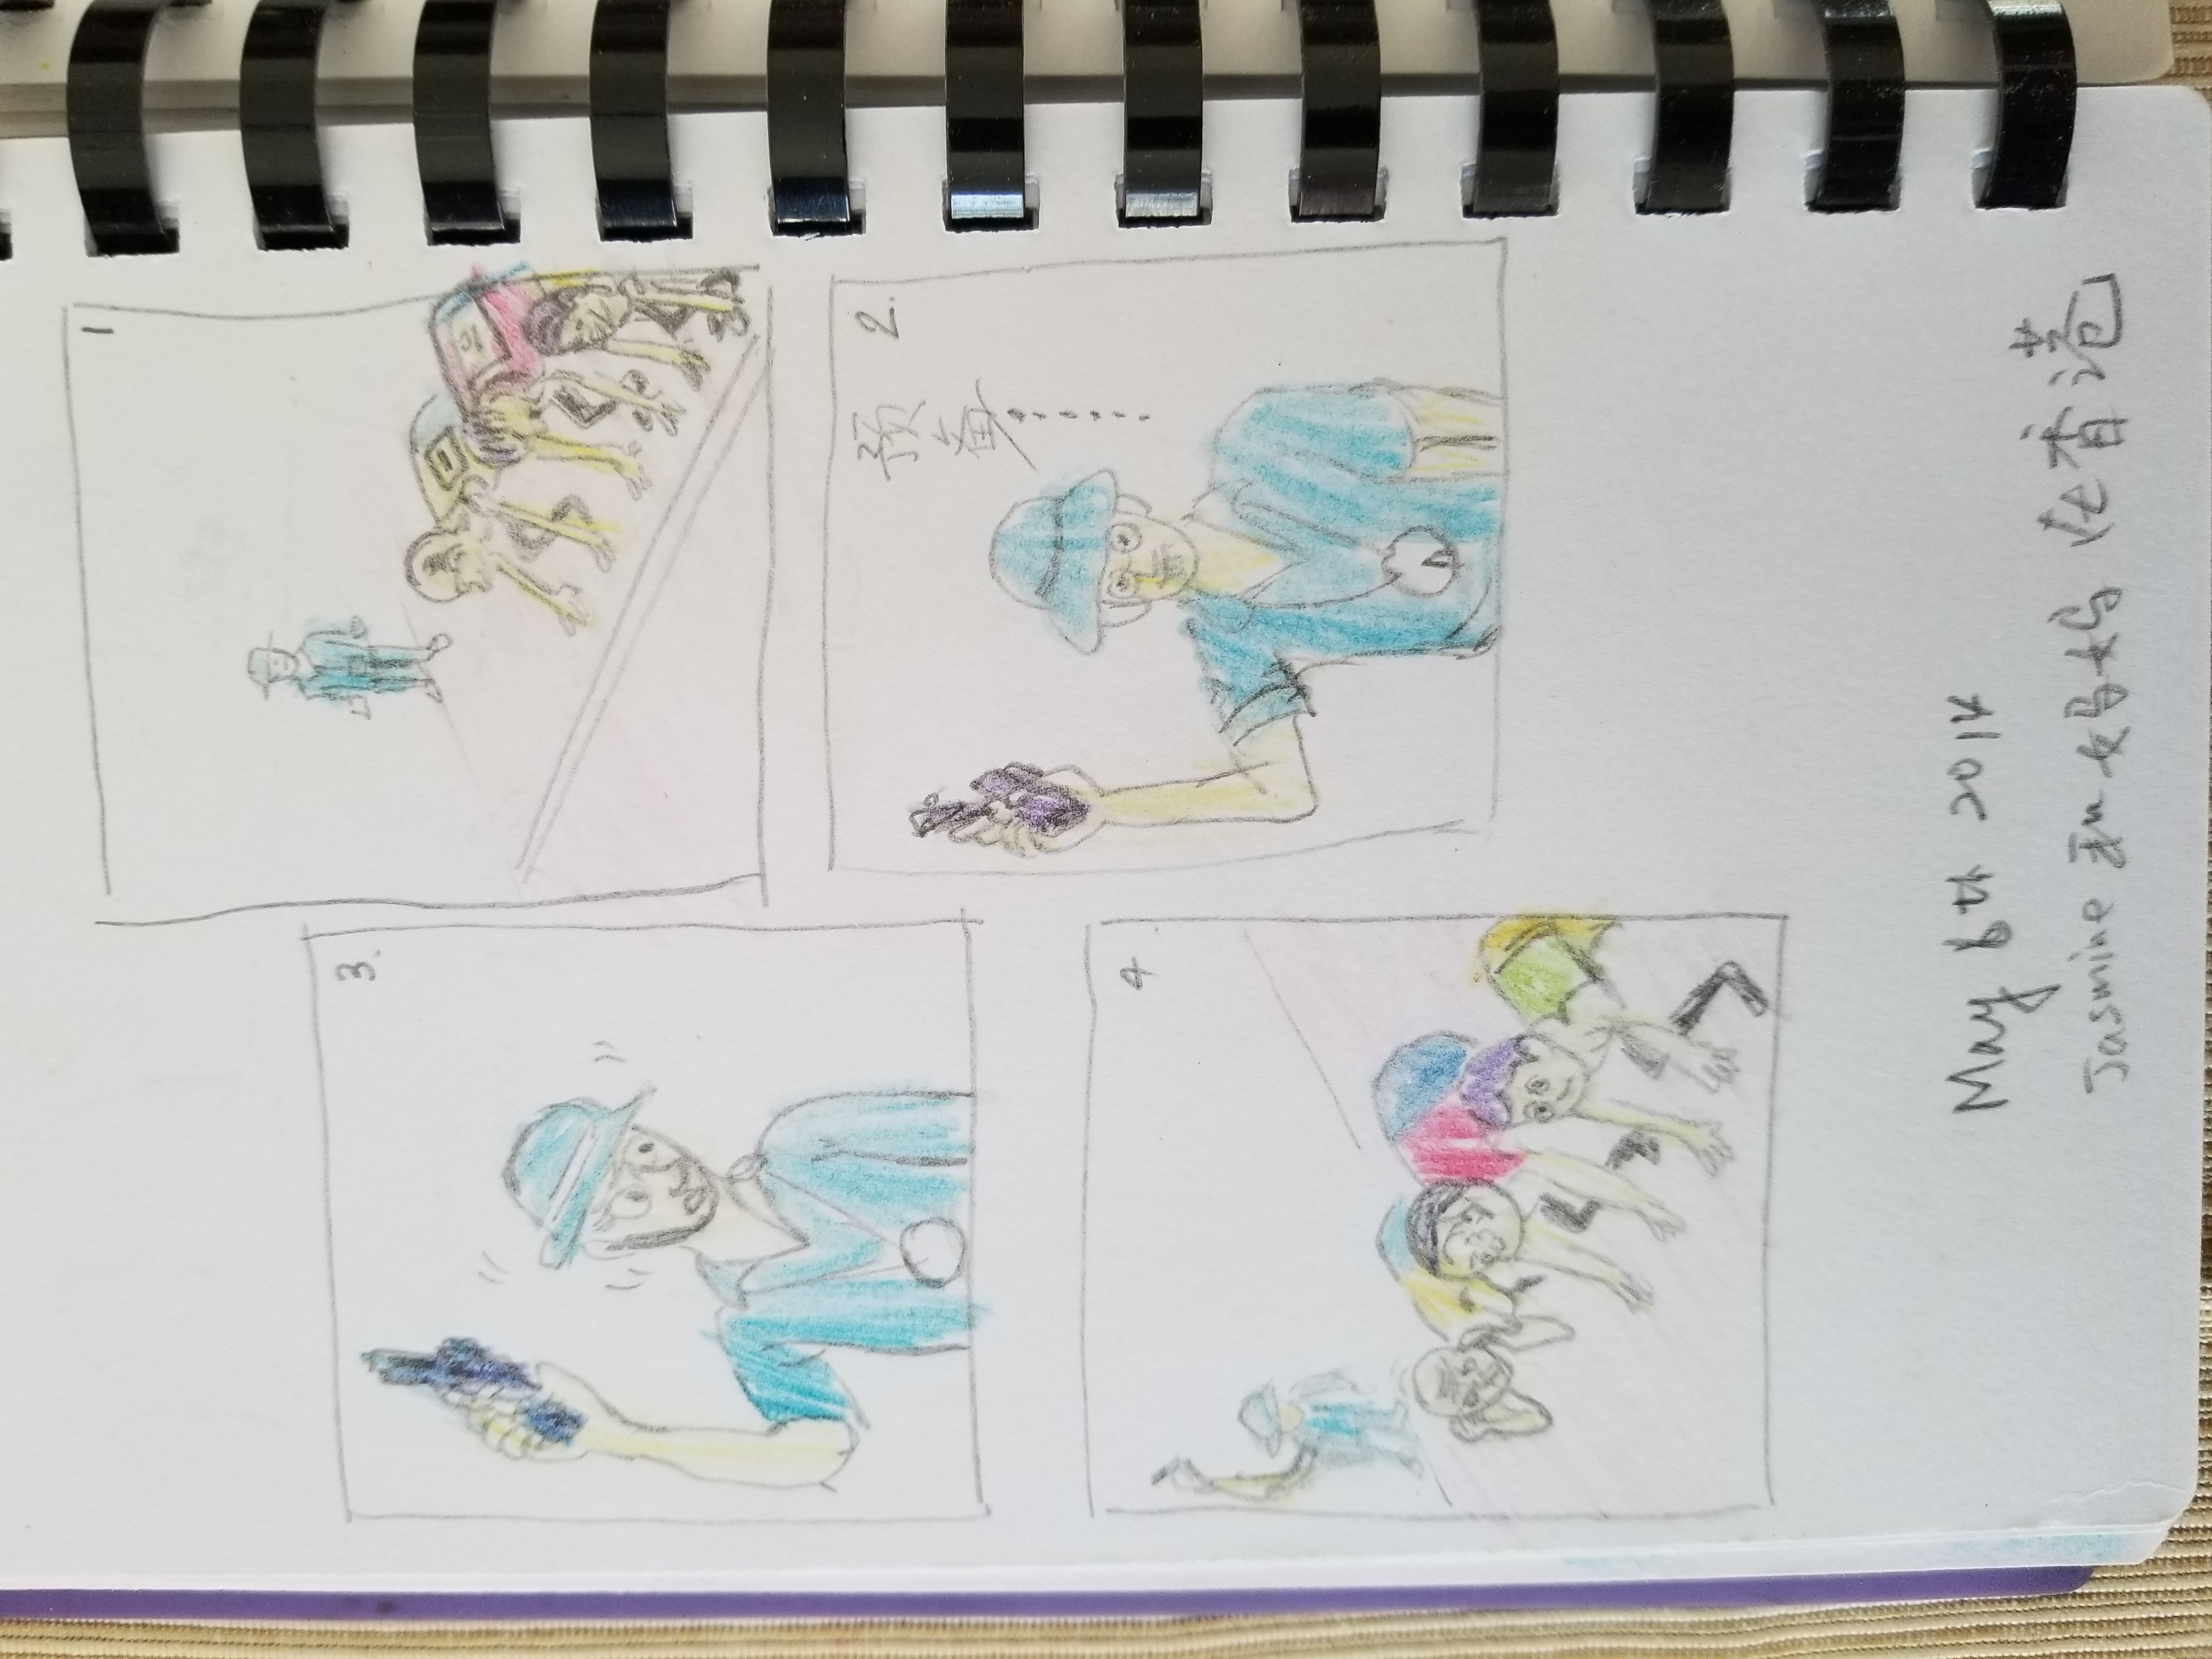 1
2.
预备……
3.
4
May 6th 2014
Jasmine 和妈妈 在香港